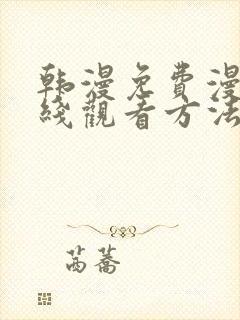 韩漫免費漫
綫觀看方法
芮蕎